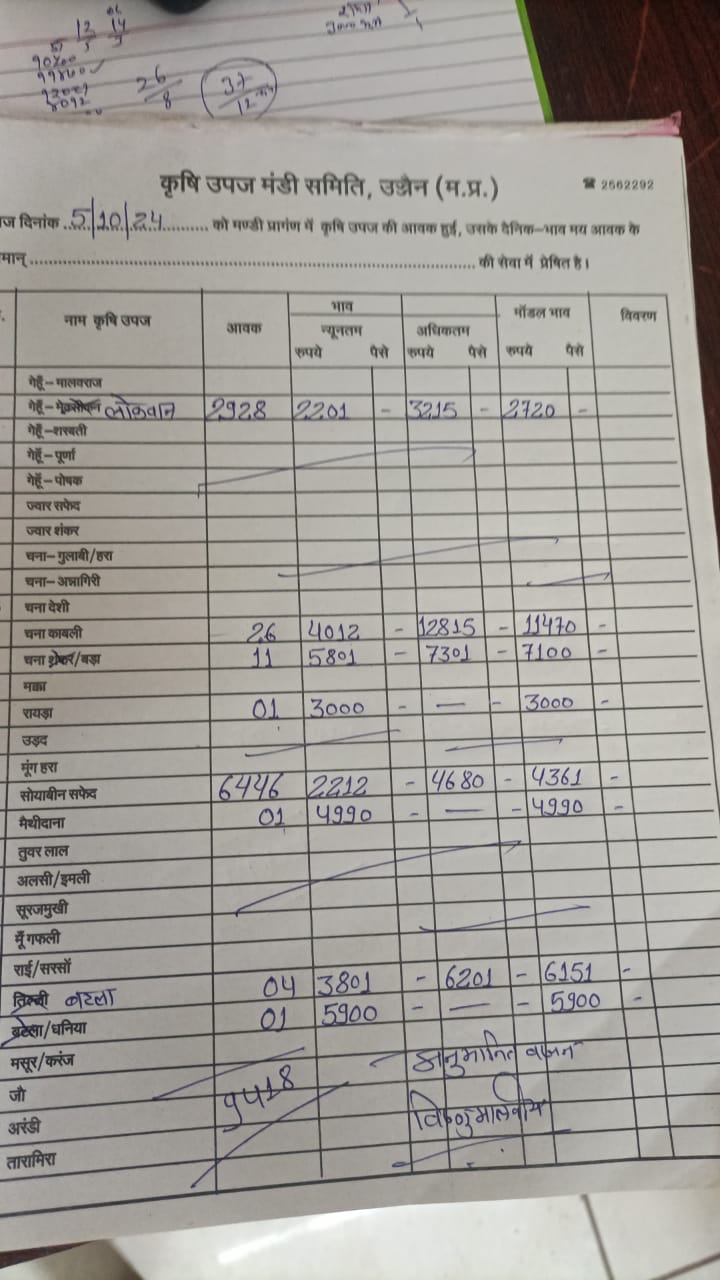 12 14
5 5
90400
99400
8092
26
8
37
12
3000
कृषि उपज मंडी समिति, उज्जैन (म.प्र.) ☎ 2562292
ज दिनांक ..5/10/24........... को मण्डी प्रागंण में कृषि उपज की आवक हुई, उसके दैनिक-भाव मय आवक के
मान् ........................................................................ की सेवा में प्रेषित है।
नाम कृषि उपज आवक भाव मॉडल भाव विवरण
न्यूनतम अधिकतम
रुपये पैसे रुपये पैसे रुपये पैसे
गेहूँ-मालवराज
गेहूँ- लोकवान 2928 2201 - 3215 - 2720 -
गेहूँ-शरबती
गेहूँ-पूर्णा
गेहूँ-पोषक
ज्वार सफेद
ज्वार शंकर
चना-गुलाबी/हरा
चना-अन्नागिरी
चना देशी
चना काबली 26 4012 - 12815 - 11470 -
चना शंकर/बड़ा 11 5801 - 7301 - 7100 -
मक्का
रायड़ा 01 3000 - — - 3000 -
उड़द
मूंग हरा
सोयाबीन सफेद 6446 2212 - 4680 - 4361 -
मैथीदाना 01 4990 - — - 4990 -
तुवर लाल
अलसी/इमली
सूरजमुखी
मूँगफली
राई/सरसों
तिल्ली बटला 04 3801 - 6201 - 6151 -
बटला/धनिया 01 5900 - — - 5900 -
मसूर/करंज अनुमानित वजन
जौ 9418
अरंडी
तारामिरा